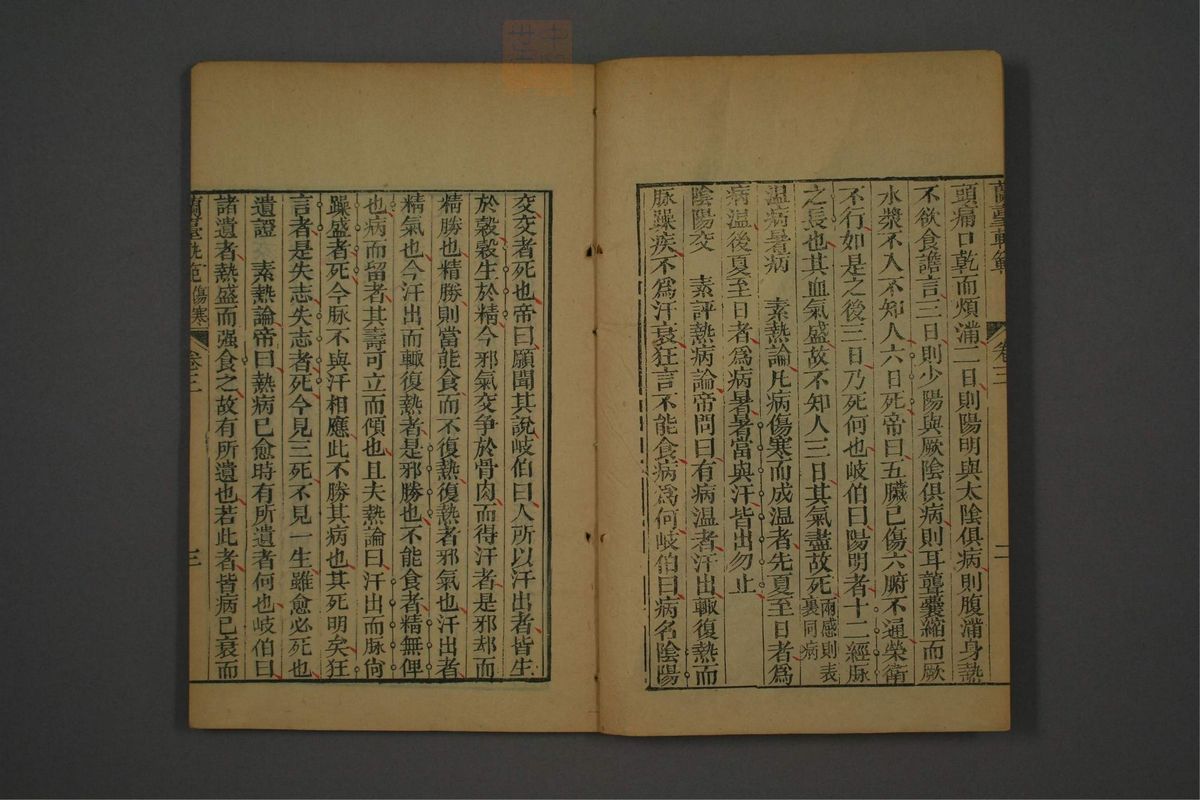 蘭臺軌範 卷三 二
頭痛口乾而煩滿二日則陽明與太陰俱病則腹滿身熱
不欲食譫言三日則少陽與厥陰俱病則耳聾囊縮而厥
水漿不入不知人六日死帝曰五臟已傷六腑不通榮衛
不行如是之後三日乃死何也岐伯曰陽明者十二經脉
之長也其血氣盛故不知人三日其氣盡故死兩感則表裏同病
温病暑病 素熱論凡病傷寒而成温者先夏至日者爲
病温後夏至日者爲病暑暑當與汗皆出勿止
陰陽交 素評熱病論帝問曰有病温者汗出輙復熱而
脉躁疾不爲汗衰狂言不能食病爲何岐伯曰病名陰陽
交交者死也帝曰願聞其說岐伯曰人所以汗出者皆生
於穀穀生於精今邪氣交爭於骨肉而得汗者是邪却而
精勝也精勝則當能食而不復熱復熱者邪氣也汗出者
精氣也今汗出而輙復熱者是邪勝也不能食者精無俾
也病而留者其壽可立而傾也且夫熱論曰汗出而脉尙
躁盛者死今脉不與汗相應此不勝其病也其死明矣狂
言者是失志失志者死今見三死不見一生雖愈必死也
遺證 素熱論帝曰熱病已愈時有所遺者何也岐伯曰
諸遺者熱盛而强食之故有所遺也若此者皆病已衰而
蘭臺軌範 傷寒 卷三 三